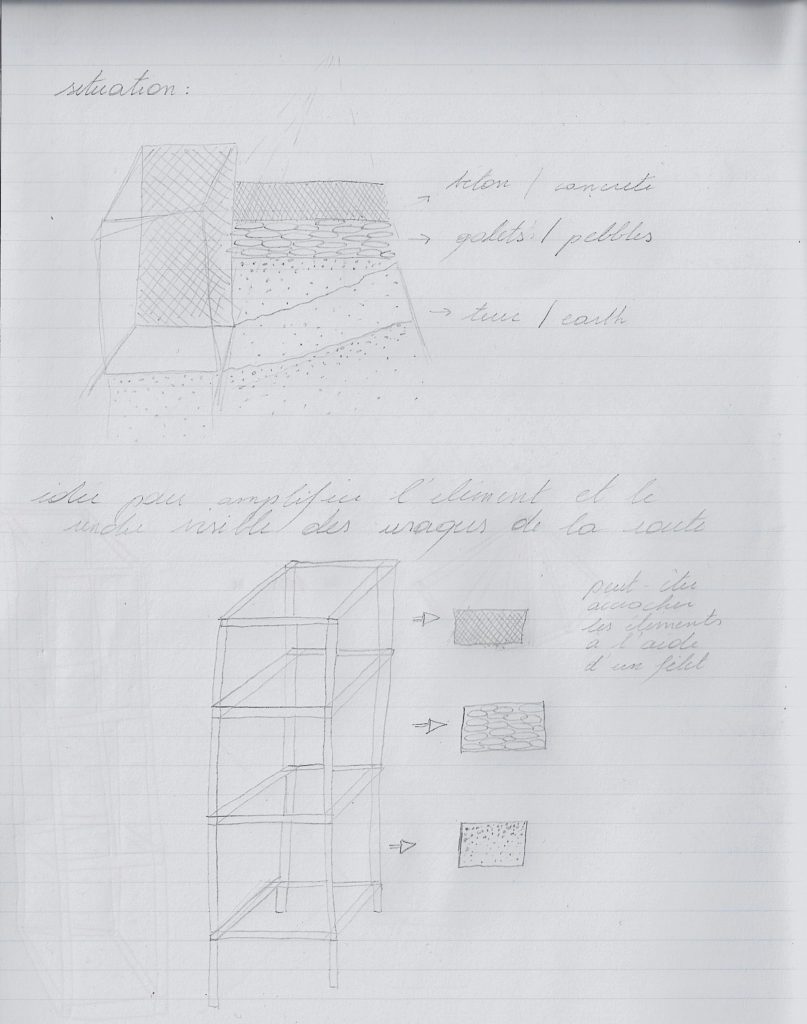 situation:
béton / concrete
galets / pebbles
terre / earth
idée pour amplifier l'élément et le
rendre visible des usagers de la route
peut-être
accrocher
les éléments
à l'aide
d'un filet